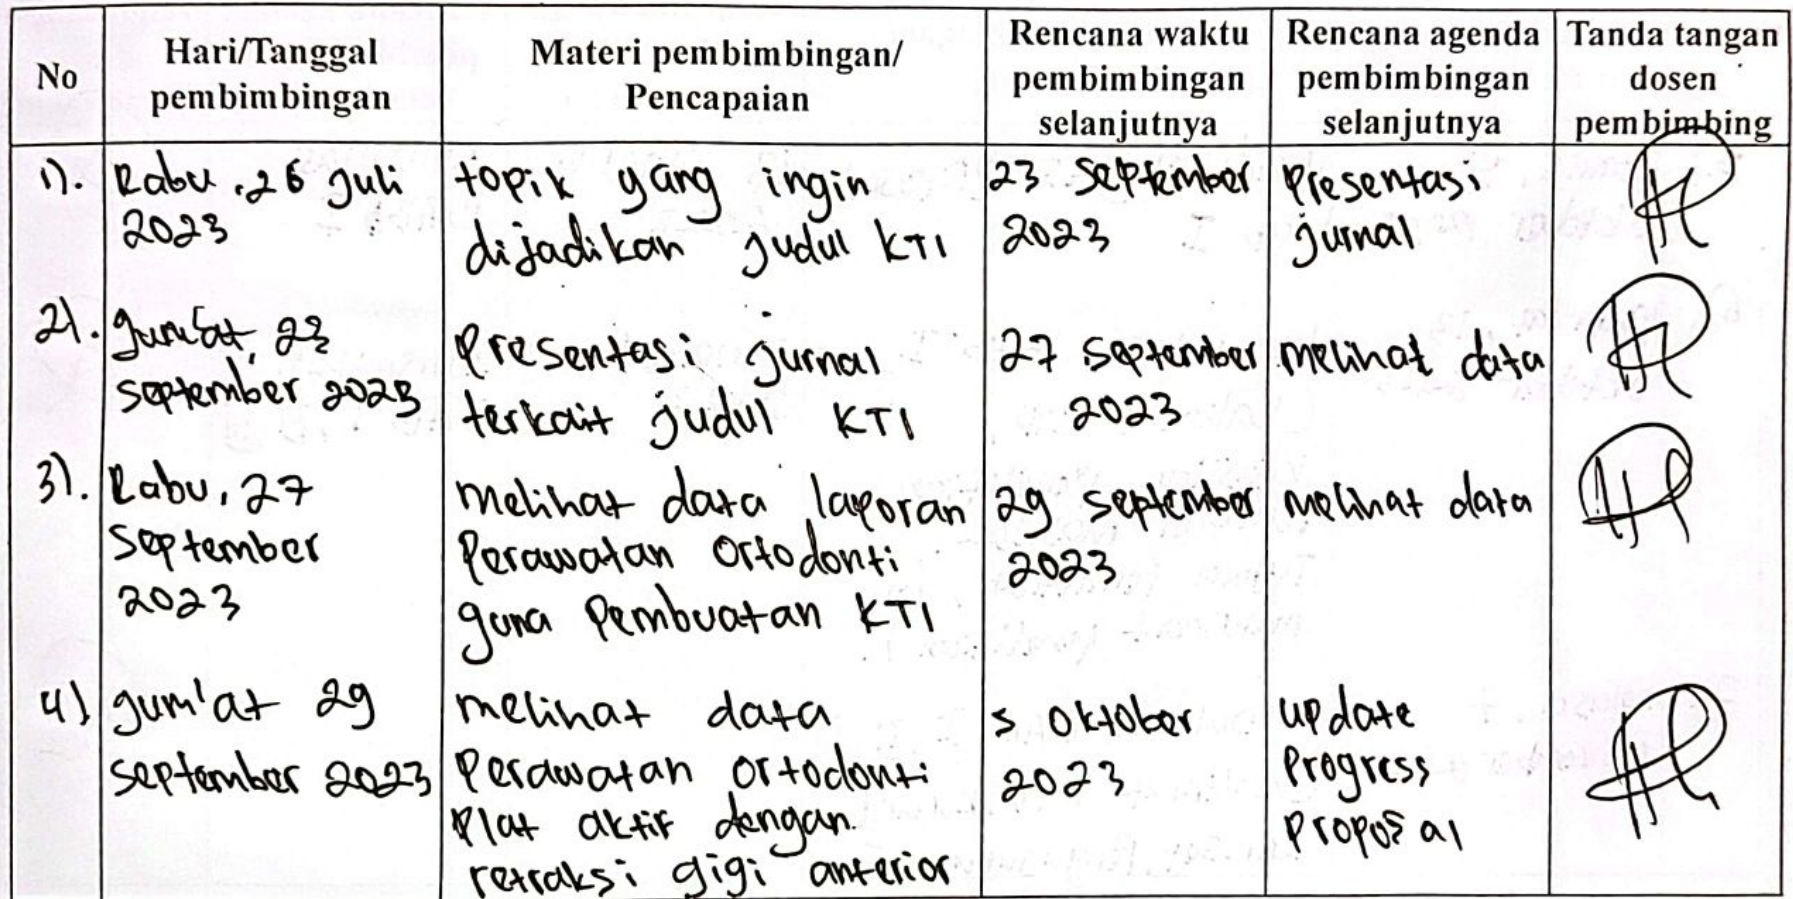 No
Hari/Tanggal
pembimbingan
Materi pembimbingan/
Pencapaian
Rencana waktu
pembimbingan
selanjutnya
Rencana agenda
pembimbingan
selanjutnya
Tanda tangan
dosen
pembimbing
1). Rabu, 26 Juli
2023
topik yang ingin
dijadikan judul KTI
23 September
2023
Presentasi
jurnal
2). Jum'at, 22
September 2023
Presentasi jurnal
terkait judul KTI
27 September
2023
melihat data
3). Rabu, 27
September
2023
melihat data laporan
Perawatan Ortodonti
guna Pembuatan KTI
29 September
2023
melihat data
4) Jum'at 29
September 2023
melihat data
Perawatan Ortodonti
Plat aktif dengan
retraksi gigi anterior
5 Oktober
2023
update
Progress
Proposal